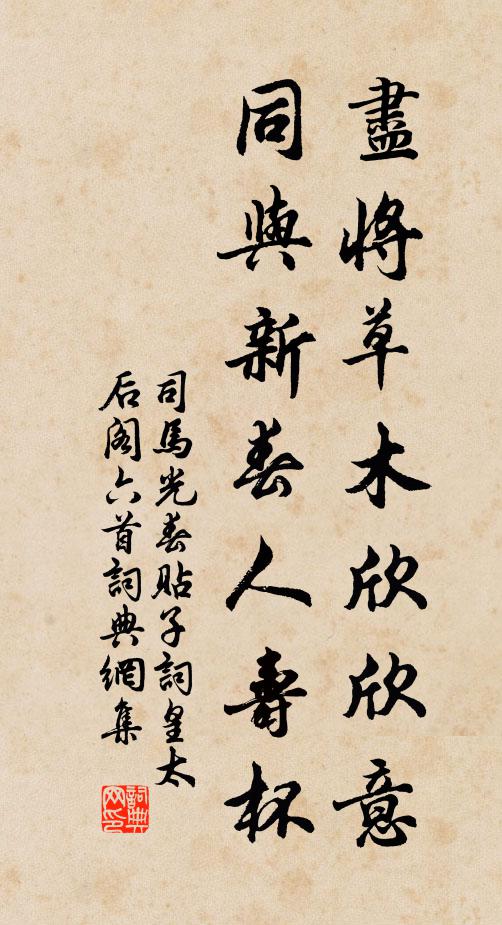 盡將草木欣欣意
同與新春人壽杯
司馬光春貼子詞皇太
后阁六首詞典網集
詞典
网印